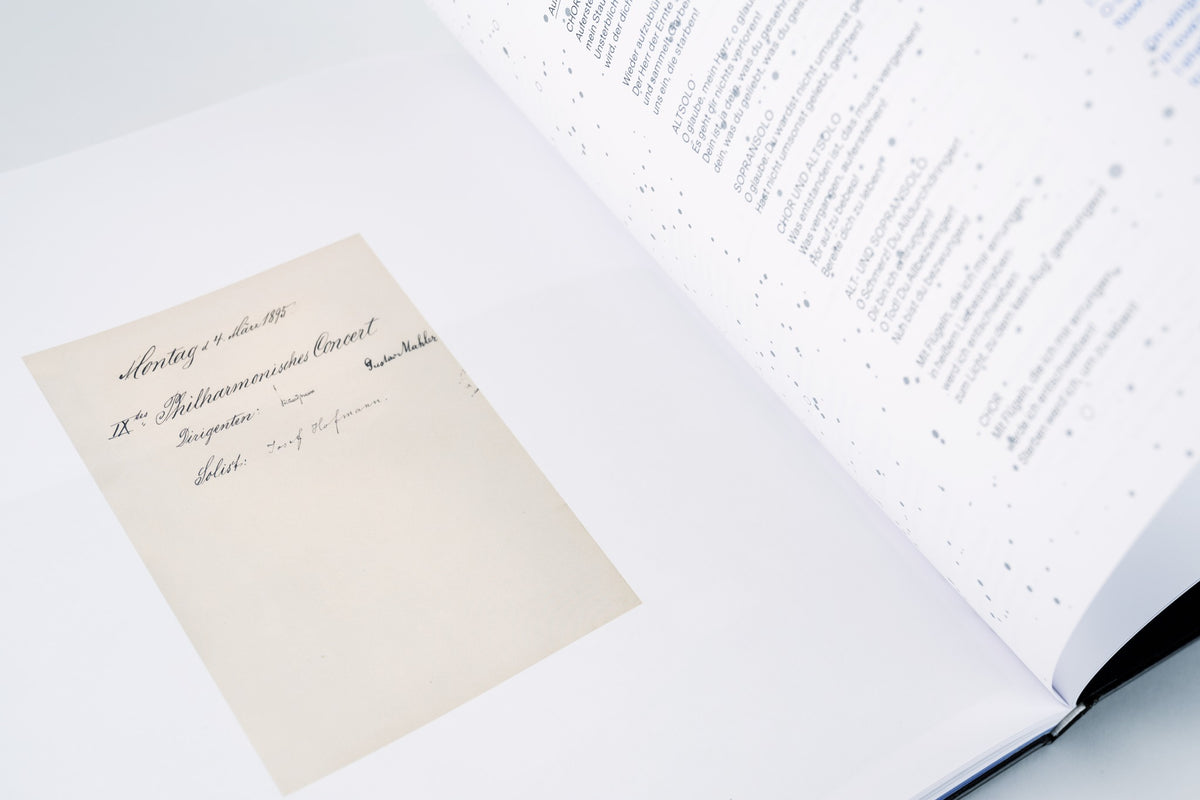 Montag d 4. März 1895
IX tes Philharmonisches Concert
Gustav Mahler
Dirigenten:
Solist: Josef Hofmann.
CHOR
Auferste
mein Stau
Unsterblich
wird, der dich
Wieder aufzublü
Der Herr der Ernte
und sammelt Garben
uns ein, die starben!
ALTSOLO
O glaube, mein Herz, o glau
Es geht dir nichts verloren!
Dein ist, ja dein, was du gesehn
dein, was du geliebt, was du ges
SOPRANSOLO
O glaube: Du wardst nicht umsonst ge
Hast nicht umsonst gelebt, gelitten!
CHOR UND ALTSOLO
Was entstanden ist, das muss vergehen!
Was vergangen, auferstehen!
Hör auf zu beben!
Bereite dich zu leben!
ALT- UND SOPRANSOLO
O Schmerz! Du Alldurchdringer!
Dir bin ich entrungen!
O Tod! Du Allbezwinger!
Nun bist du bezwungen!
Mit Flügeln, die ich mir errungen,
in heißem Liebesstreben
werd ich entschweben
zum Licht, zu dem kein Aug' gedrungen!
CHOR
Mit Flügeln, die ich mir errungen,
werde ich entschweben!
Sterben werd ich, um zu leben!